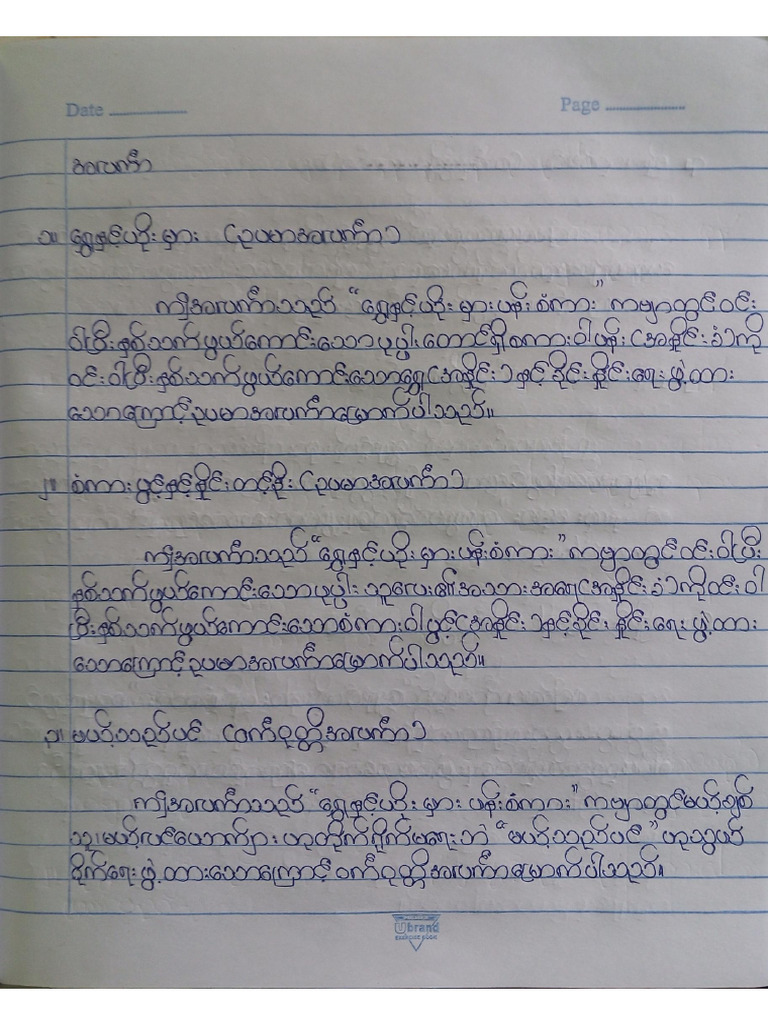 Date
Page
အလင်္ကာ
၁။ ရွှေနှင့်ပဒိုး မှား (ဥပမာအလင်္ကာ)
ဤအလင်္ကာသည် “ရွှေနှင့်ပဒိုး မှားပန်းစံကား” ကဗျာတွင်ဝင်း
ဝါပြီးနှစ်သက်ဖွယ်ကောင်းသောပုပ္ပါးတောင်ရှိစကားဝါပန်း(အနှိုင်းခံ)ကို
ဝင်းဝါပြီးနှစ်သက်ဖွယ်ကောင်းသောရွှေ(အနှိုင်း)နှင့် ခိုင်းနှိုင်းရေးဖွဲ့ထား
သောကြောင့်ဥပမာအလင်္ကာမြောက်ပါသည်။
၂။ စံကားပွင့်နှင့်နှိုင်းတင့်ခိုး (ဥပမာအလင်္ကာ)
ဤအလင်္ကာသည် “ရွှေနှင့်ပဒိုး မှားပန်းစံကား” ကဗျာတွင်ဝင်းဝါပြီး
နှစ်သက်ဖွယ်ကောင်းသောပုပ္ပါး သူလေး၏အသားအရေ(အနှိုင်းခံ)ကိုဝင်းဝါ
ပြီးနှစ်သက်ဖွယ်ကောင်းသောစံကားဝါပွင့်(အနှိုင်း)နှင့်ခိုင်း နှိုင်းရေးဖွဲ့ထား
သောကြောင့်ဥပမာအလင်္ကာမြောက်ပါသည်။
၃။ မယ့်သည်ပင် (ဝင်္ကဝုတ္တိအလင်္ကာ)
ဤအလင်္ကာသည် “ရွှေနှင့်ပဒိုး မှား ပန်းစံကား” ကဗျာတွင်မယ့်ချစ်
သူ၊မယ့်လင်ယောက်ျား ဟုတိုက်ရိုက်မရေးဘဲ “မယ့်သည်ပင်” ဟုသွယ်
ဝိုက်ရေးဖွဲ့ထားသောကြောင့်ဝင်္ကဝုတ္တိအလင်္ကာမြောက်ပါသည်။
Ubrand